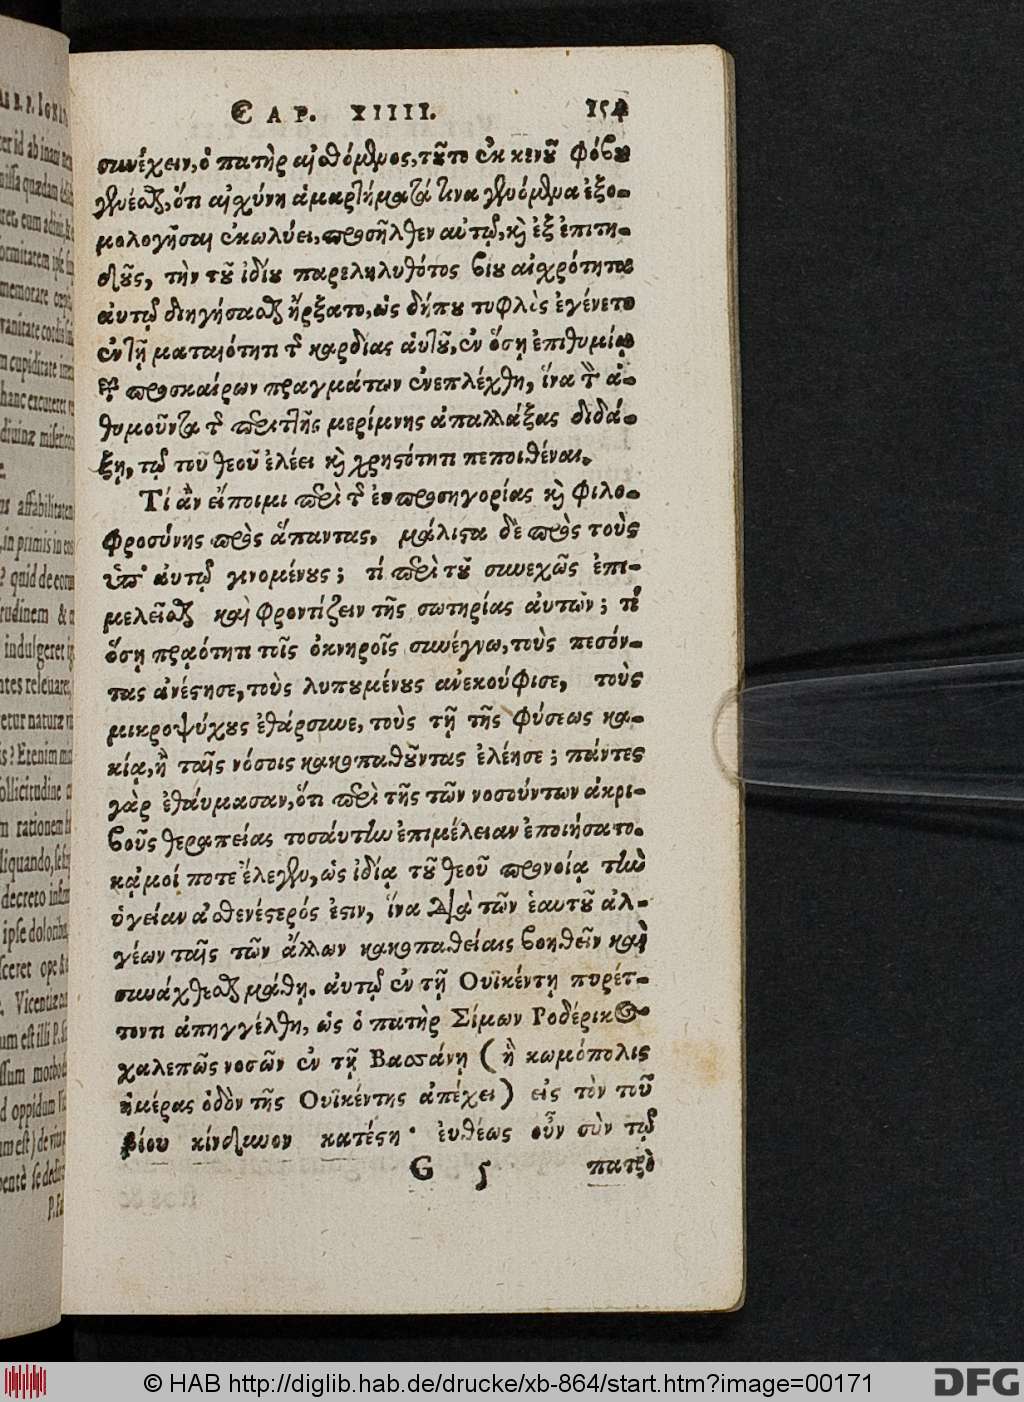 CAP. XIIII. 154
συνέχειν, ὁ πατὴρ αἰσθόμενος, τοῦτο ἐκ κενοῦ φόβου
γενέσθαι, ὅτι αἰσχύνη ἁμαρτήματά τινα γενόμενα ἐξο-
μολογῆσαι ἐκωλύει, προσῆλθεν αὐτῷ, καὶ ἐξ ἐπιτη-
δοῦς, τὴν τοῦ ἰδίου παρεληλυθότος βίου αἰσχρότητα
αὐτῷ διηγήσασθαι ἤρξατο, ὡς δήπου τυφλὸς ἐγένετο
ἐν τῇ ματαιότητι τῆς καρδίας αὐτοῦ, ἐν ὅσῃ ἐπιθυμίᾳ
τῶν προσκαίρων πραγμάτων ἐνεπλέχθη, ἵνα τὸν ἀ-
θυμοῦντα τῆς περιττῆς μερίμνης ἀπαλλάξας διδά-
ξῃ, τῷ τοῦ θεοῦ ἐλέει καὶ χρηστότητι πεποιθέναι.
Τί ἂν εἴποιμι περὶ τῆς εὐπροσηγορίας καὶ φιλο-
φροσύνης πρὸς ἅπαντας, μάλιστα δὲ πρὸς τοὺς
ὑπ' αὐτῷ γινομένους; τί περὶ τοῦ συνεχῶς ἐπι-
μελεῖσθαι καὶ φροντίζειν τῆς σωτηρίας αὐτῶν; τί
ὅσῃ πραότητι τοῖς ὀκνηροῖς συνέγνω, τοὺς πεσόν-
τας ἀνέστησε, τοὺς λυπουμένους ἀνεκούφισε, τοὺς
μικροψύχους ἐθάρσυνε, τοὺς τῇ τῆς φύσεως κα-
κίᾳ, ἢ ταῖς νόσοις κακοπαθοῦντας ἐλέησε; πάντες
γὰρ ἐθαύμασαν, ὅτι περὶ τῆς τῶν νοσούντων ἀκρι-
βοῦς θεραπείας τοσαύτην ἐπιμέλειαν ἐποιήσατο.
κᾀμοί ποτε ἔλεγεν, ὡς ἰδίᾳ τοῦ θεοῦ προνοίᾳ τὴν
ὑγείαν ἀσθενέστερός ἐστιν, ἵνα διὰ τῶν ἑαυτοῦ ἀλ-
γέων ταῖς τῶν ἄλλων κακοπαθείαις βοηθεῖν καὶ
συνάχθεσθαι μάθῃ. αὐτῷ ἐν τῇ Οὐϊκέντῃ πυρέτ-
τοντι ἀπηγγέλθη, ὡς ὁ πατὴρ Σίμων Ροδέρικος
χαλεπῶς νοσῶν ἐν τῇ Βασσάνῃ (ἣ κωμόπολις
ἡμέρας ὁδὸν τῆς Οὐϊκέντης ἀπέχει) εἰς τὸν τοῦ
βίου κίνδυνον κατέστη· εὐθέως οὖν σὺν τῷ
G 5 πατρὶ
© HAB http://diglib.hab.de/drucke/xb-864/start.htm?image=00171
DFG